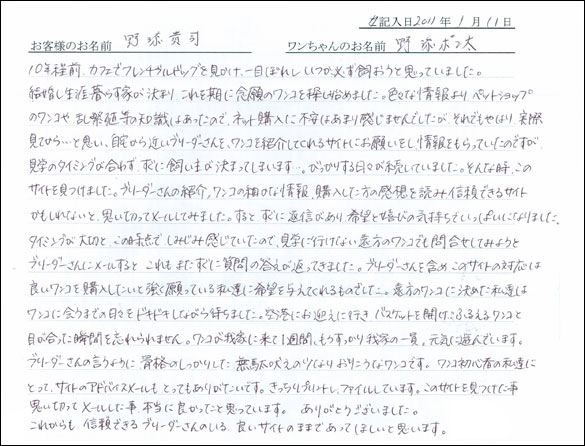 ご記入日 2011年 1月 11日
お客様のお名前 野添貴司 ワンちゃんのお名前 野添ポン太
10年程前、カフェでフレンチブルドッグを見かけ、一目ぼれし いつか必ず飼おうと思っていました。
結婚し生涯暮らす家が決まり、これを期に念願のワンコを探し始めました。色々な情報より、ペットショップ
のワンコや乱繁殖等の知識はあったので、ネット購入に不安はあまり感じませんでしたが、それでもやはり、実際
見てから…と思い、自宅から近いブリーダーさんを、ワンコを紹介してくれるサイトにお願いをし情報をもらっていたのですが、
見学のタイミングが合わず、すぐに飼い主が決まってしまいます…。がっかりする日々が続いていました。そんな時、この
サイトを見つけました。ブリーダーさんの紹介、ワンコの細かな情報、購入した方の感想を読み信頼できるサイト
かもしれないと、思い切ってメールしてみました。すると すぐに返信があり、希望と喜びの気持ちでいっぱいになりました。
タイミングが大切と、この時点でしみじみ感じていたので、見学に行けない遠方のワンコでも問合せしてみようと
ブリーダーさんにメールすると これもまたすぐに質問の答えが返ってきました。ブリーダーさんを含めこのサイトの対応は
良いワンコを購入したいと強く願っている私達に希望を与えてくれるものでした。遠方のワンコに決めた私達は
ワンコに会うまでの日々をドキドキしながら待ちました。空港にお迎えに行き バスケットを開け、ふるえるワンコと
目が合った瞬間を忘れられません。ワンコが我家に来て1週間、もうすっかり我家の一員。元気に遊んでいます。
ブリーダーさんの言うように 骨格のしっかりした 無駄吠えのないおりこうなワンコです。 ワンコ初心者の私達に
とって、サイトのアドバイスメールも とってもありがたいです。きっちりプリントし、ファイルしています。このサイトを見つけた事
思い切ってメールした事、本当に良かったと思っています。 ありがとうございました。
これからも 信頼できるブリーダーさんのいる、良いサイトのままであってほしいと思います。